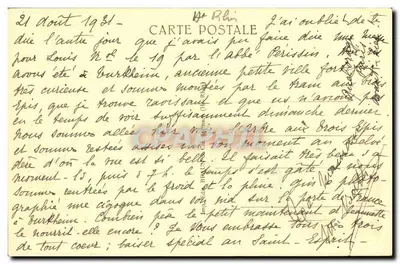 21 août 1931 - Ht Rhin J'ai oublié de te
CARTE POSTALE
dire l'autre jour que j'avais pu faire dire une messe
pour Louis le 19 par l'abbé Perissin. Nous
avons été à Turkheim, ancienne petite ville
très curieuse et sommes montées par le tram aux Trois
Epis, que je trouve ravissant et que ns n'avions pas
eu le temps de voir suffisamment dimanche dernier
Nous sommes allées aux trois Epis
et sommes restées assises un bon moment au
d'où la vue est si belle. Il faisait très beau à ce
moment-là, puis à 7 h. le temps s'est gâté et nous
sommes rentrées par le froid et la pluie. photo-
graphié une cigogne dans son nid sur porte de France
à Turkheim. Combien pèse le petit maintenant et Jeannette
le nourrit-elle encore? Je vous embrasse tous les trois
de tout coeur; baiser spécial au Saint-Esprit-